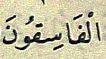 الْفَاسِقُونَ